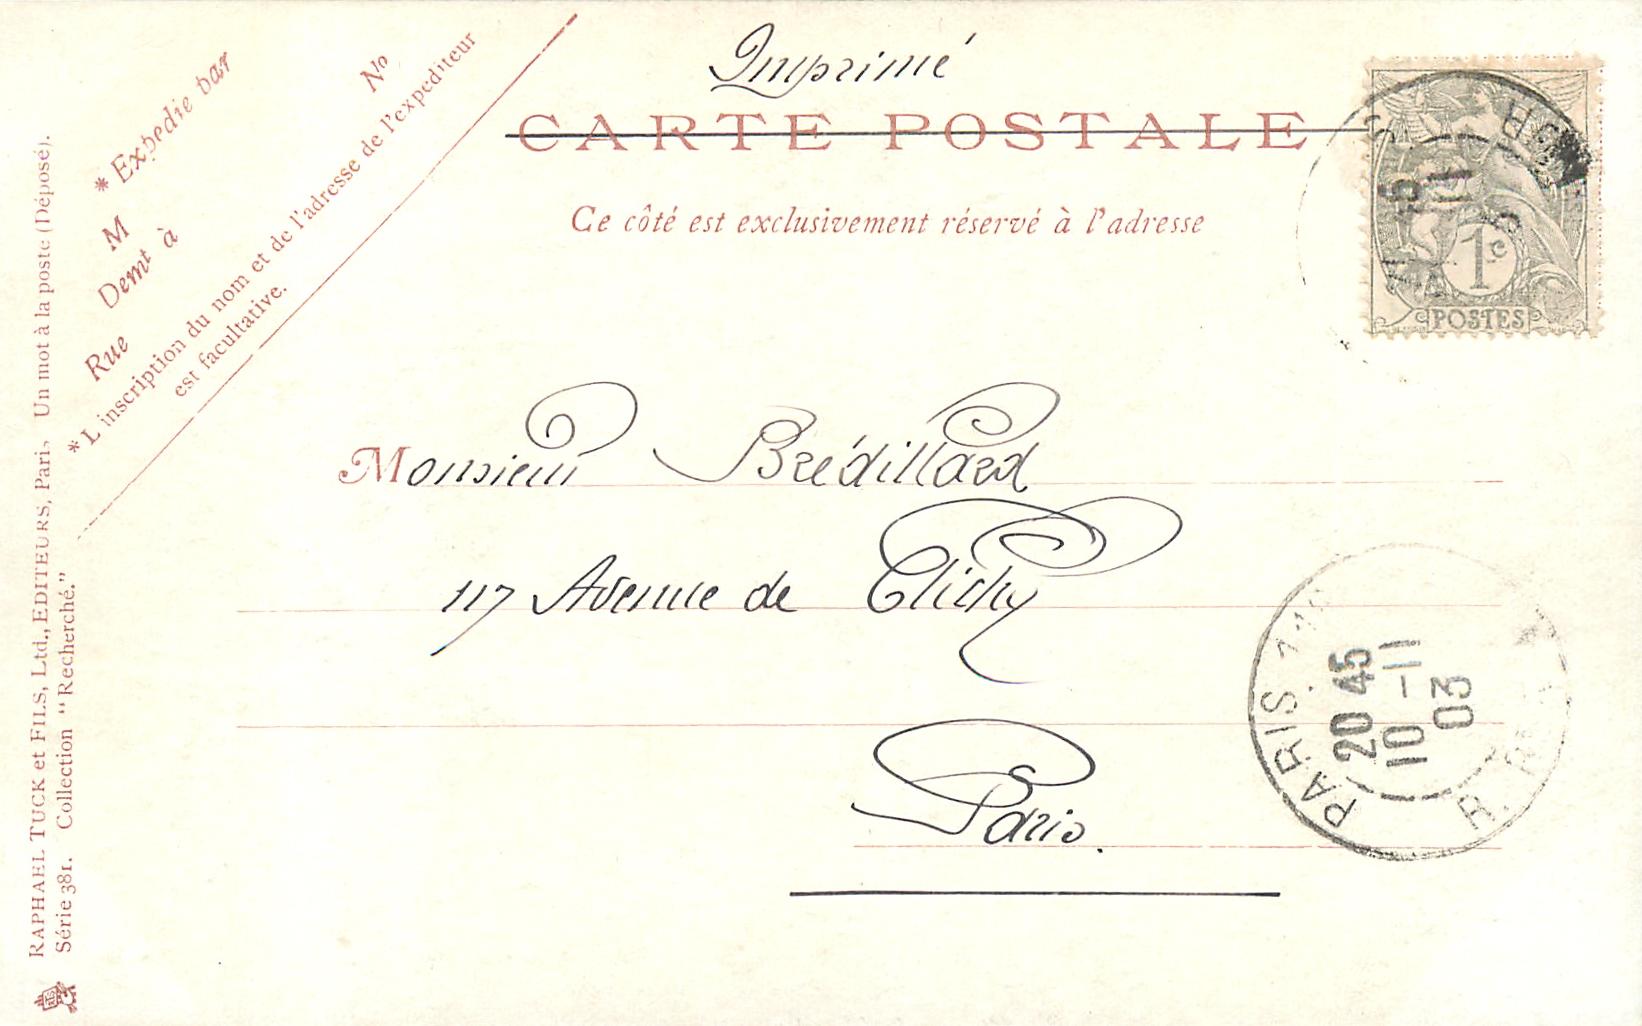 Imprimé
CARTE POSTALE
Ce côté est exclusivement réservé à l'adresse
* Expedie par
M
Demt à
Rue
No
* L'inscription du nom et de l'adresse de l'expediteur
est facultative.
RAPHAEL TUCK et FILS, Ltd., EDITEURS, Paris, Un mot à la poste (Déposé).
Série 381. Collection "Recherché."
1c
POSTES
Monsieur Brédillard
117 Avenue de Clichy
Paris.
PARIS
20 45
10 -11
03
R.